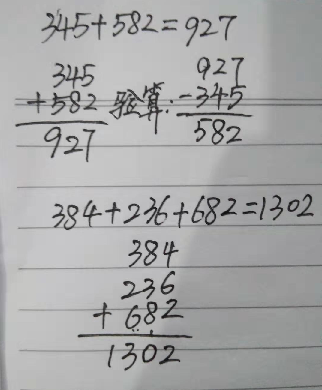 345+582=927
345 927
+582 验算: -345
927 582
384+236+682=1302
384
236
+682
1302